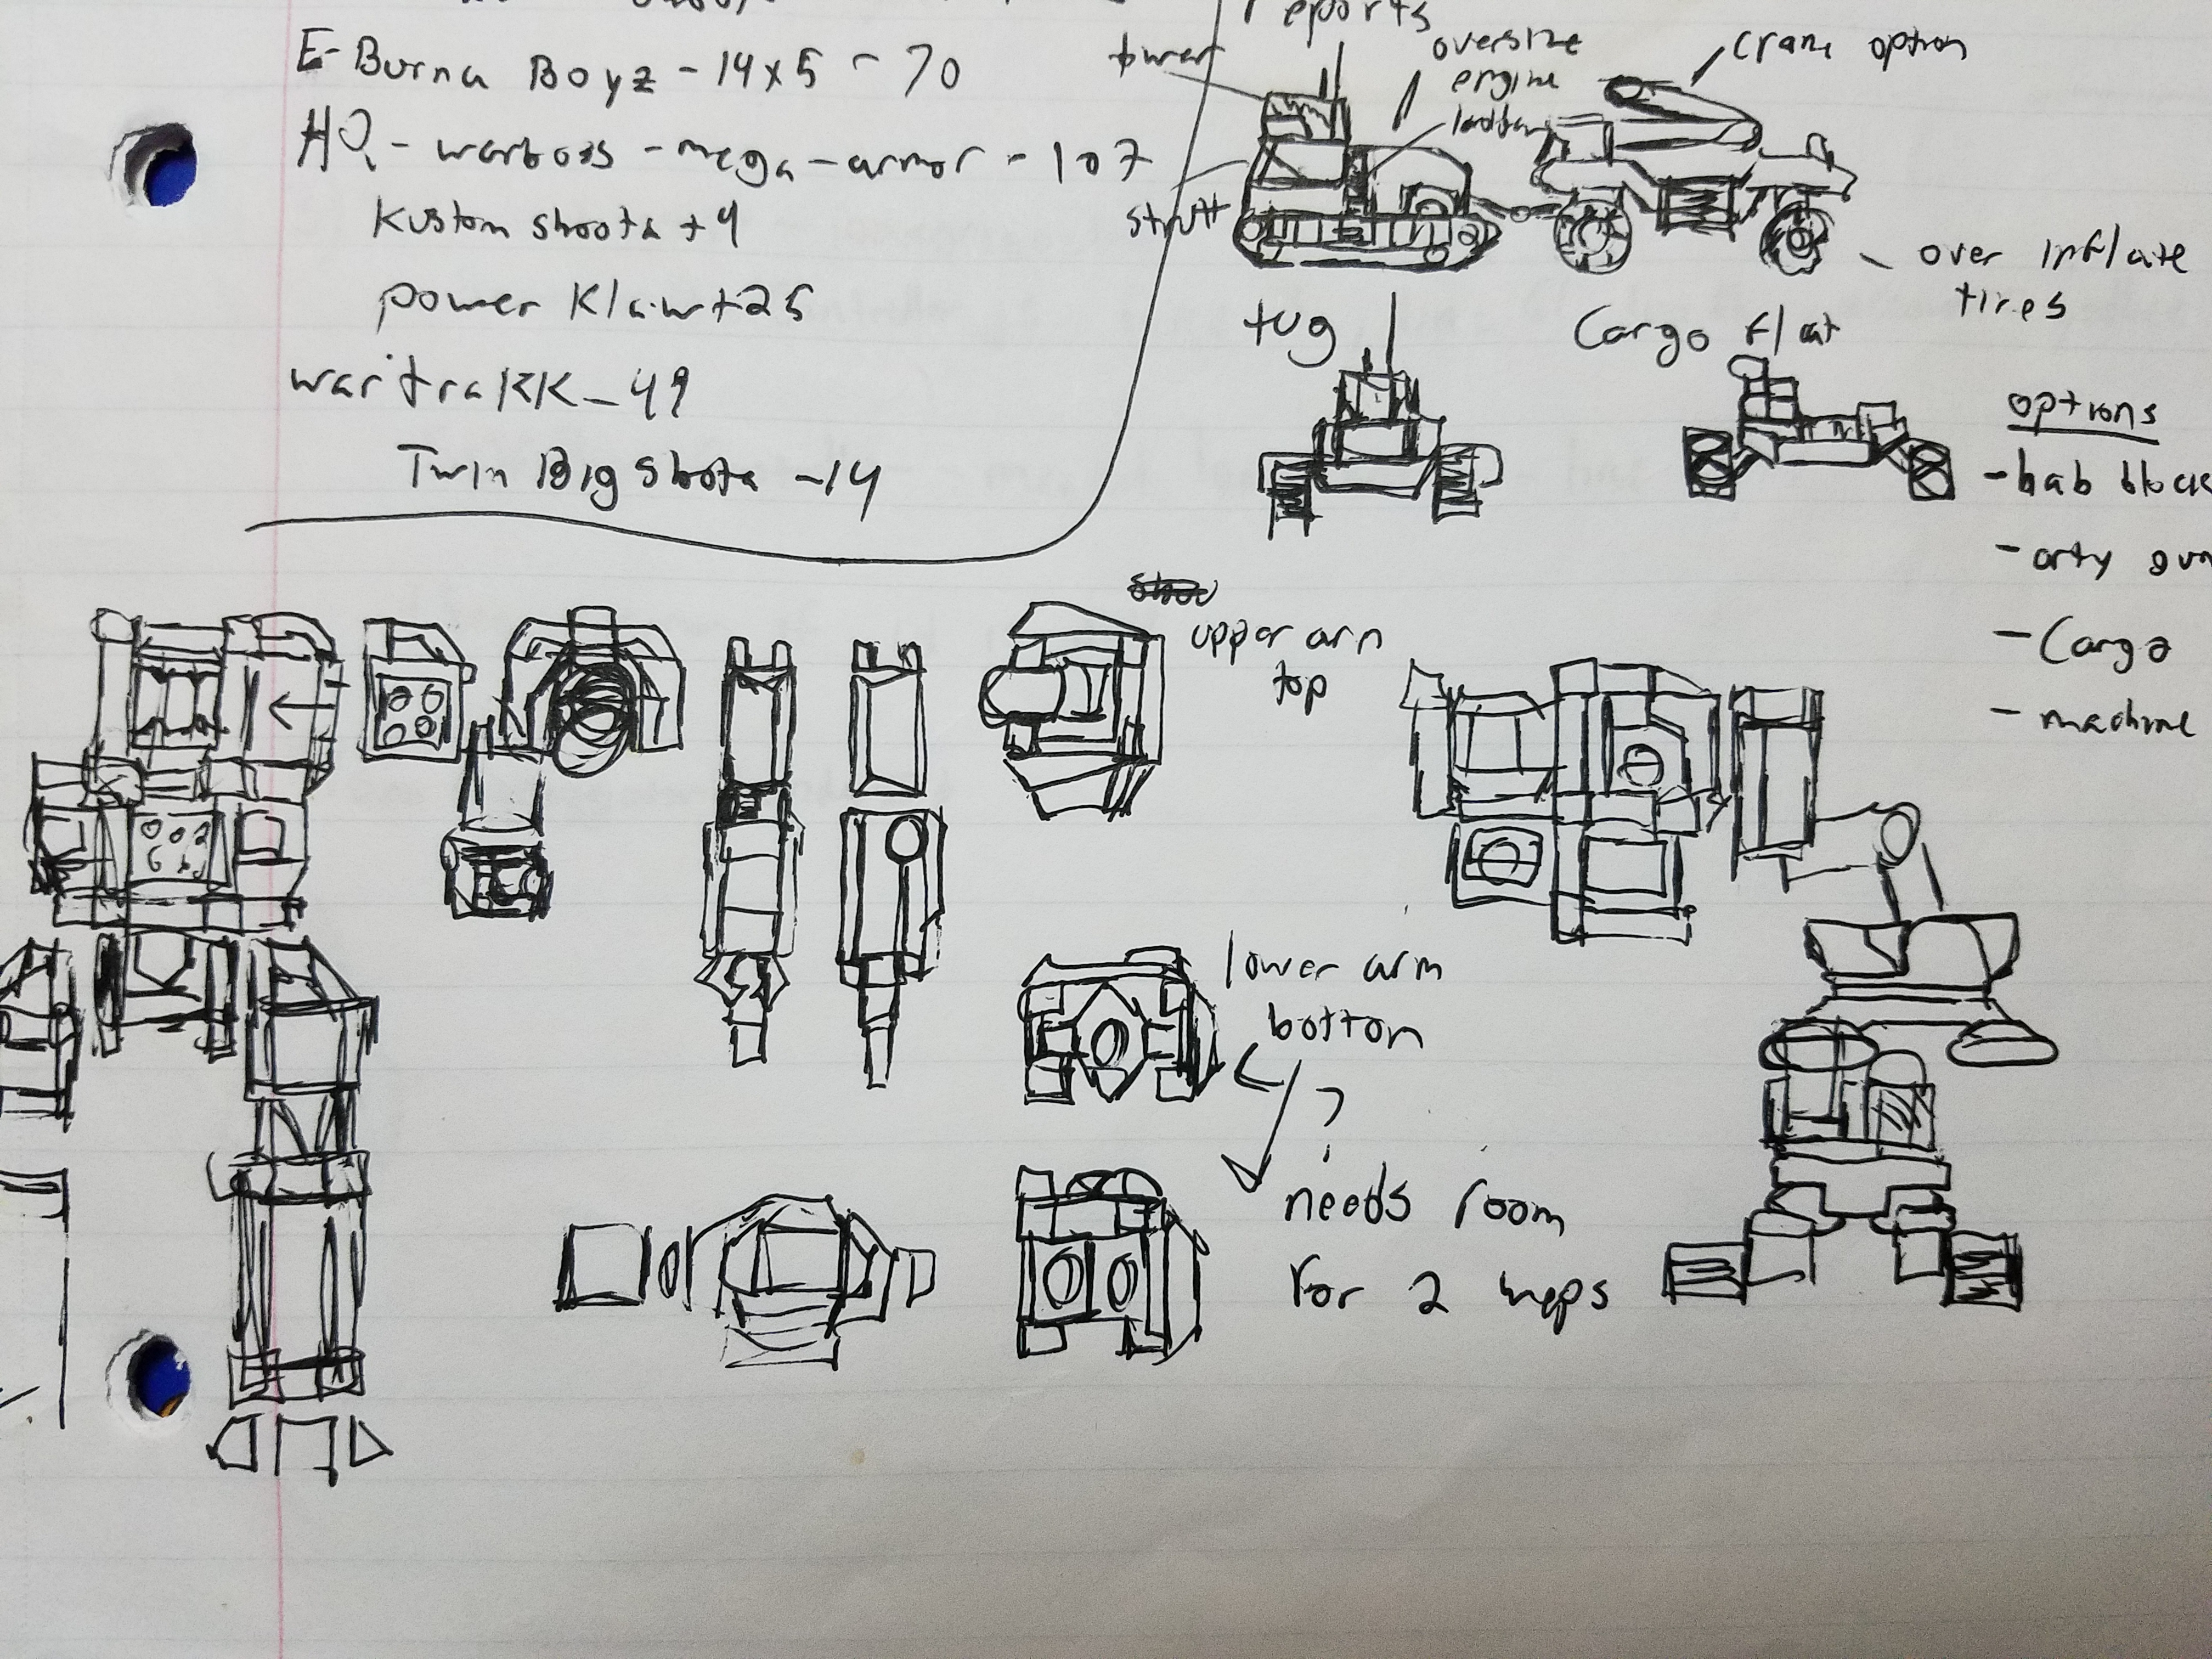 E-Burna Boyz - 14x5 - 70
HQ - warboss - mega-armor - 107
Kustom shoota +4
power Klaw+25
wartraKK - 49
Twin Big Shota - 14
reports
tower
oversize
engine
ladder
crane option
strutt
over inflate
tires
tug
Cargo flat
options
- hab block
- arty gun
- Cargo
- machine
upper arm
top
lower arm
bottom
?
needs room
for 2 weps